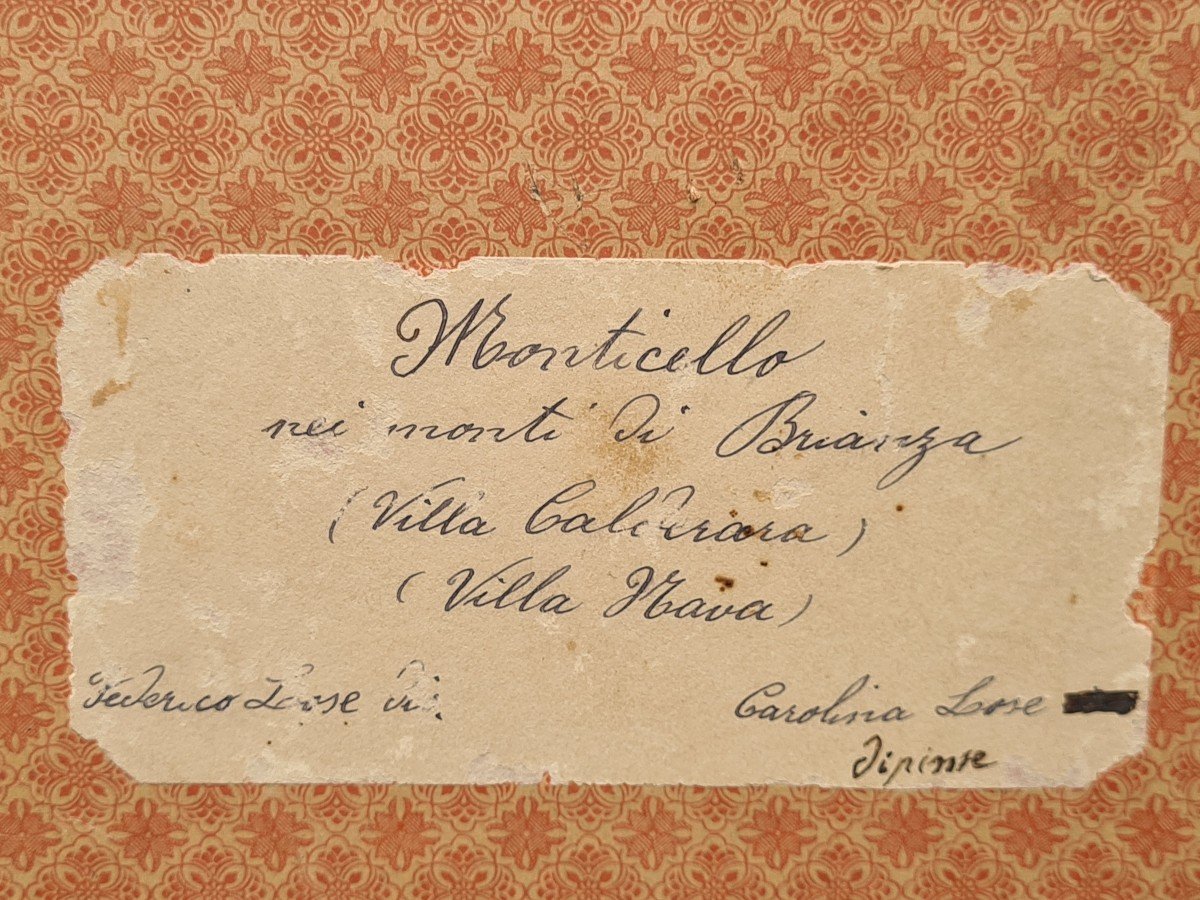 Monticello
nei monti di Brianza
(Villa Calderara)
(Villa Nava)
Federico Lose dis. Carolina Lose
dipinse